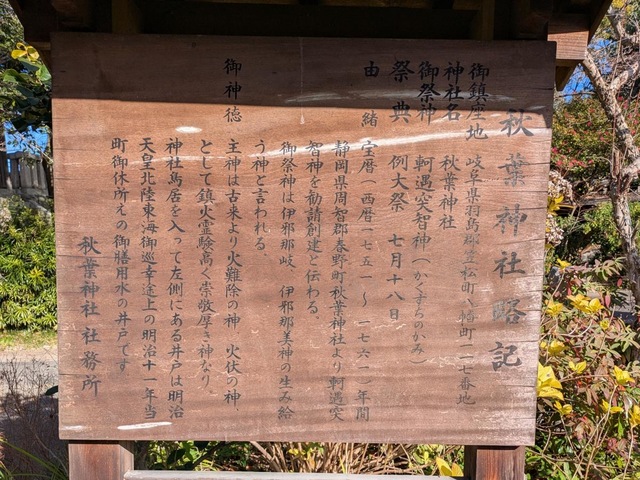 秋葉神社略記
御鎮座地 岐阜県羽島郡笠松町八幡町一一七番地
神社名 秋葉神社
御祭神 軻遇突智神(かぐすちのかみ)
祭典 例大祭 七月十八日
由緒 宝暦(西暦一七五一〜一七六一)年間
静岡県周智郡春野町秋葉神社より軻遇突
智神を勧請創建と伝わる。
御祭神は伊邪那岐 伊邪那美神の生み給
う神と言われる。
御神徳 主神は古来より火難除の神 火伏の神、
として鎮火霊験高く崇敬厚き神なり。
神社鳥居を入って左側にある井戸は明治
天皇北陸東海御巡幸途上の明治十一年当
町御休所えの御膳用水の井戸です
秋葉神社社務所